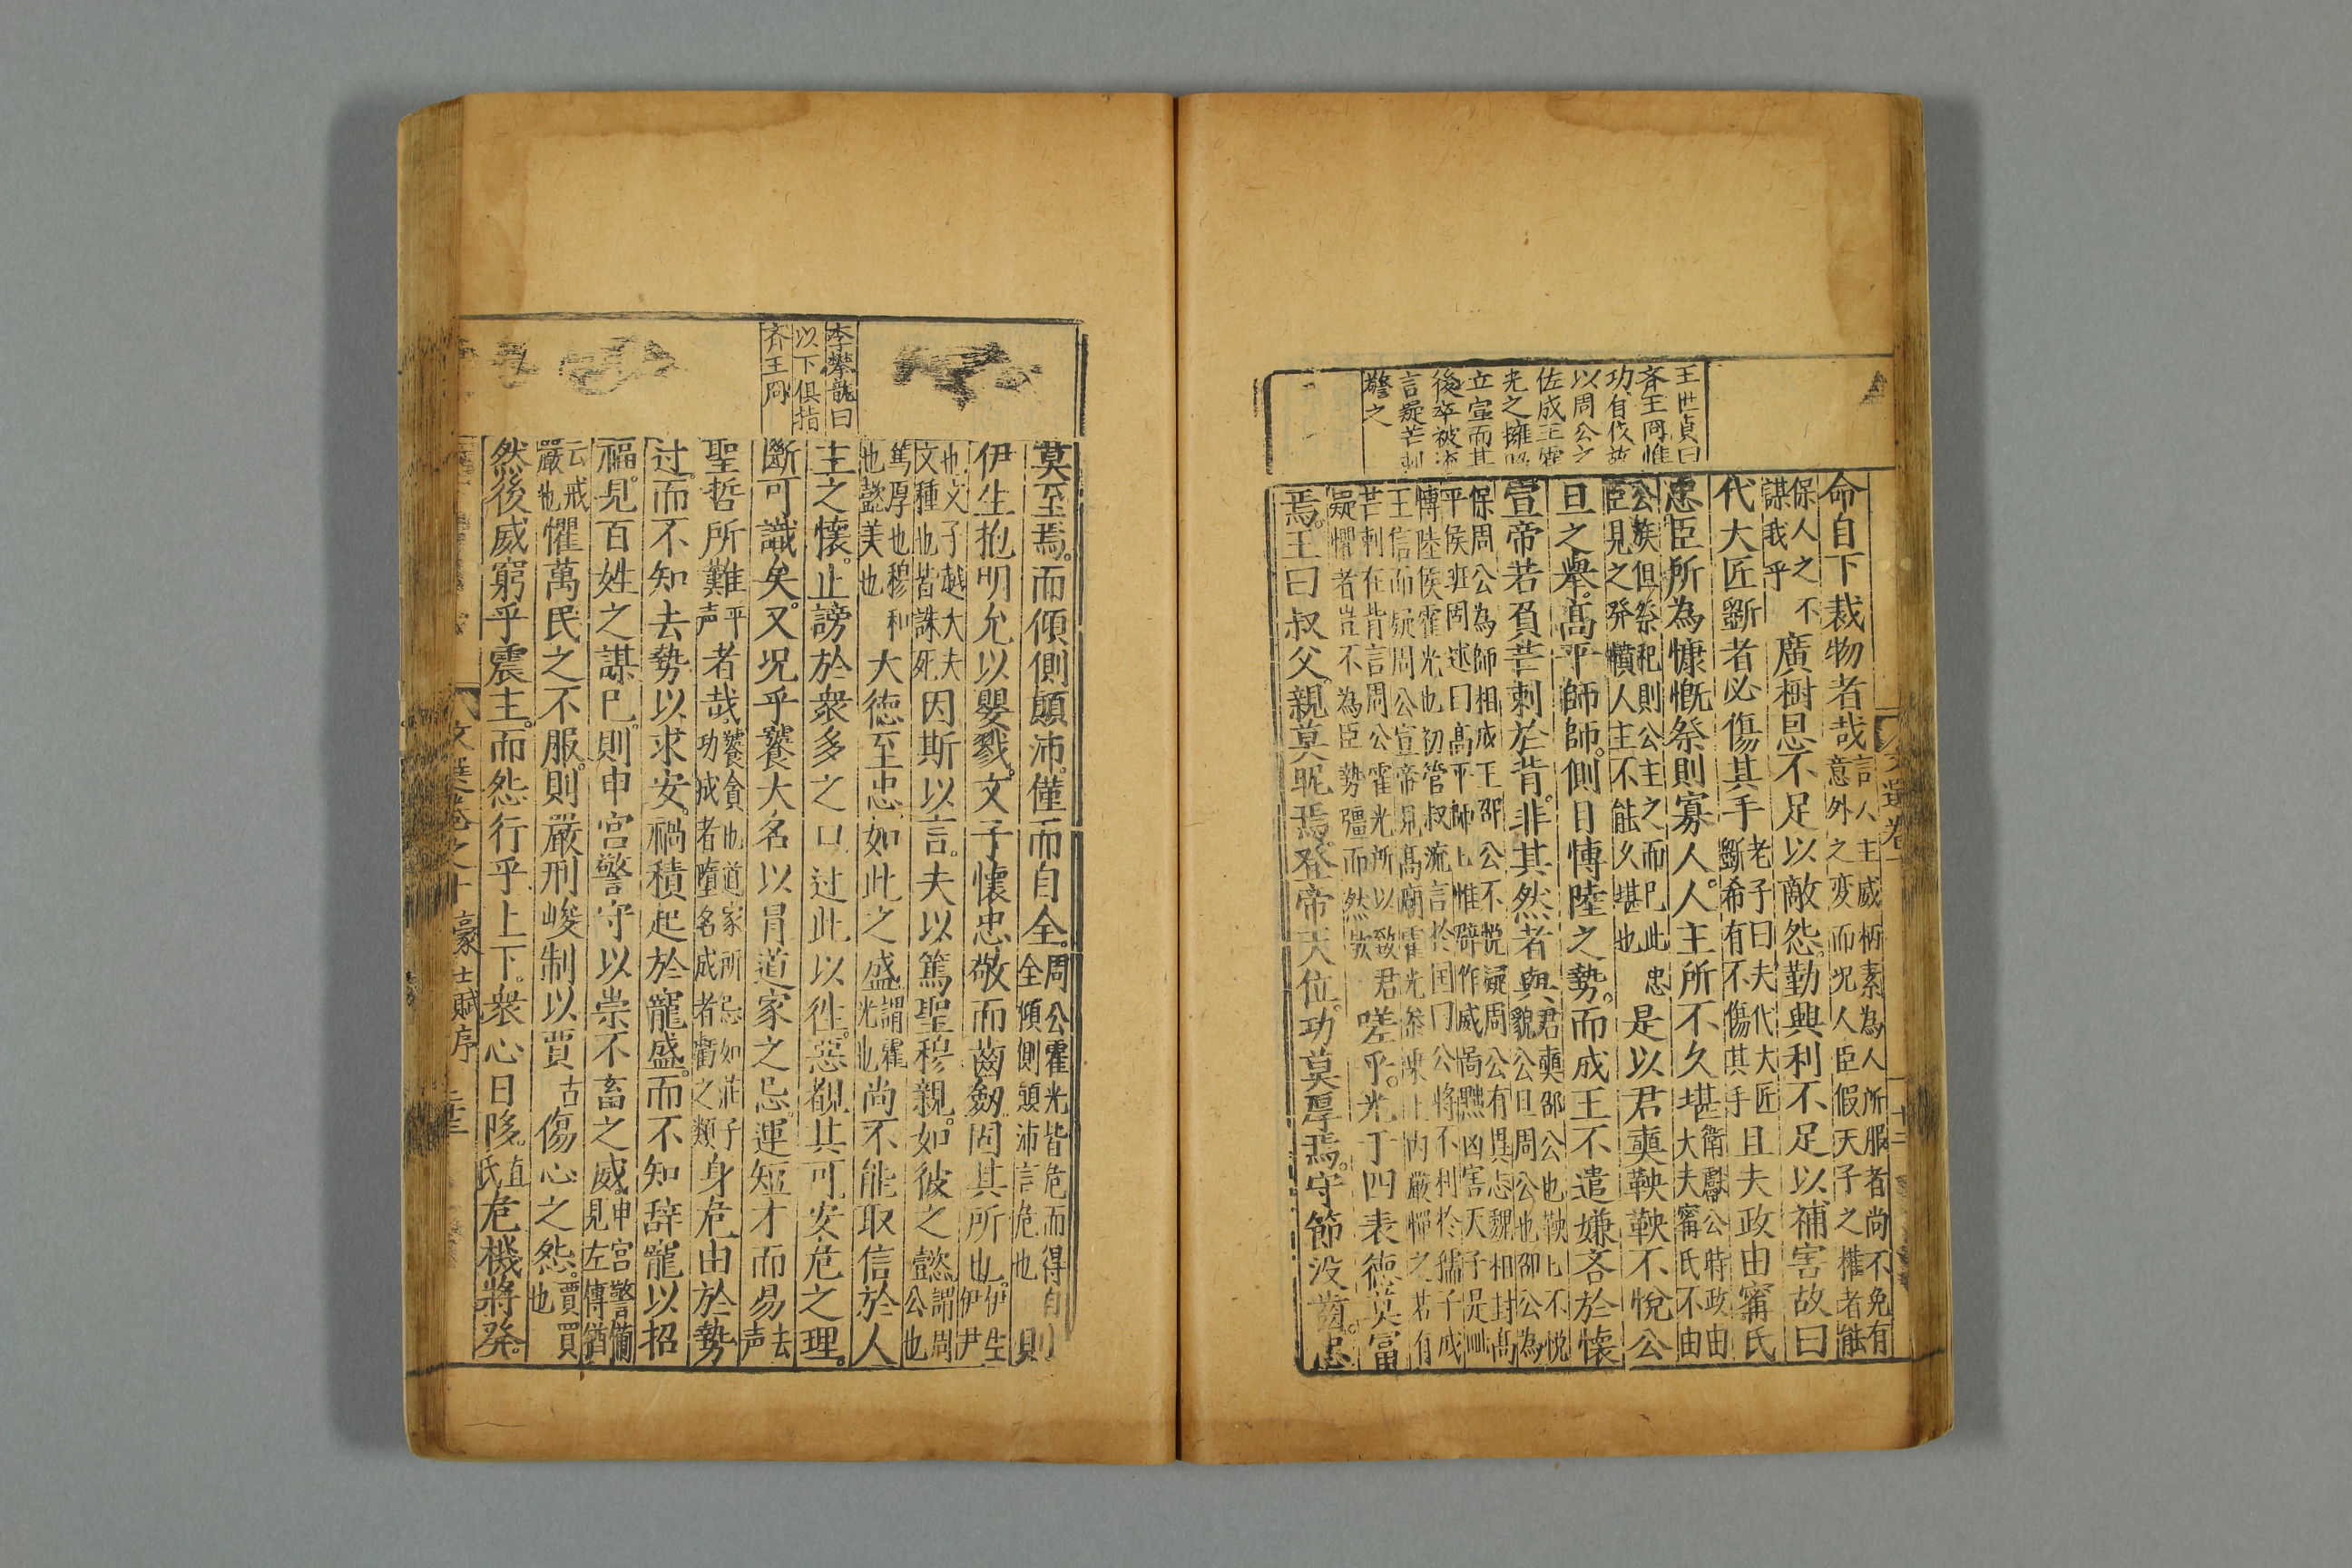 文選卷
十二
王世貞曰
斉王冏惟
功自伐故
以周公之
佐成王霍
光之擁昭
立宣而其
後卒被流
言疑芒刺
警之
命自下裁物者哉言人主威柄素為人所服者尚不免有意外之变而况人臣假天子之權者能
保人之不謀我乎廣樹恩不足以敵怨。勤興利不足以補害故曰
代大匠斵者必傷其手老子曰夫代大匠斵希有不傷其手且夫政由寗氏
忠臣所為慷慨祭則寡人。人主所不久堪衛獻公時政由大夫寗氏不由
公族但祭祀則公主之而已此忠臣見之發憤人主不能久堪也是以君奭鞅鞅不悅公
旦之舉。高平師師。側目慱陸之勢。而成王不遣嫌吝於懷
宣帝若負芒刺於背。非其然者與君奭邵公也鞅〻不悅貌公旦周公也邵公為
保周公為師相成王邵公不悅疑周公有異志魏相封高平侯班固述曰高平師〻惟辟作威啚黜凶害天子是毗
慱陸侯霍光也初管叔流言於囯曰公將不利於孺子成王信而疑周公宣帝見高廟霍光叅乘上内嚴憚之若有
芒刺在背言周公霍光所以致君疑懼者豈不為臣勢彊而然故嗟乎。光于四表德莫富
焉。王曰叔父。親莫昵焉。登帝天位。功莫厚焉。守節没齒。忠
李攀龍曰
以下俱指
齐王冏
莫至焉。而傾側顛沛。僅而自全。周公霍光皆危而得自全傾側顛沛言危也則
伊生抱明允以嬰戮。文子懷忠敬而齒劔固其所也。伊生伊尹
也文子越大夫文種也皆誅死因斯以言。夫以篤聖穆親。如彼之懿謂周公也
篤厚也穆和也懿美也大德至忠如此之盛謂霍光也尚不能取信於人
主之懷。止謗於衆多之口过此以徃。惡覩其可安危之理。
斷可識矣。又况乎饕大名以冒道家之忌。運短才而易去声
聖哲所難平声者哉饕貪也道家所忌如莊子功成者墮名成者虧之類身危由於勢
过。而不知去勢以求安。禍積起於寵盛。而不知辞寵以招
福。見百姓之謀已。則申宮警守以崇不畜之威。申宮警僃見左傳猶
云戒嚴也懼萬民之不服。則嚴刑峻制以賈古傷心之怨。賈買也
然後威窮乎震主。而怨行乎上下。衆心日陊。直氏危機將發。
文選卷之十
豪士賦序